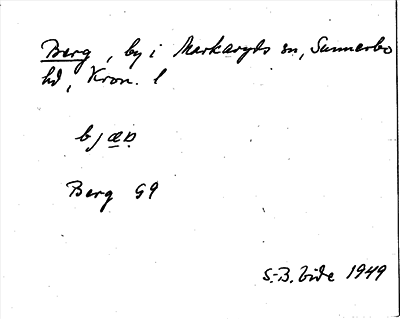 Berg, by i Markaryds sn, Sunnerbo
hd, Kron. l
bjæ
Berg G9
S.-B. Vide 1949